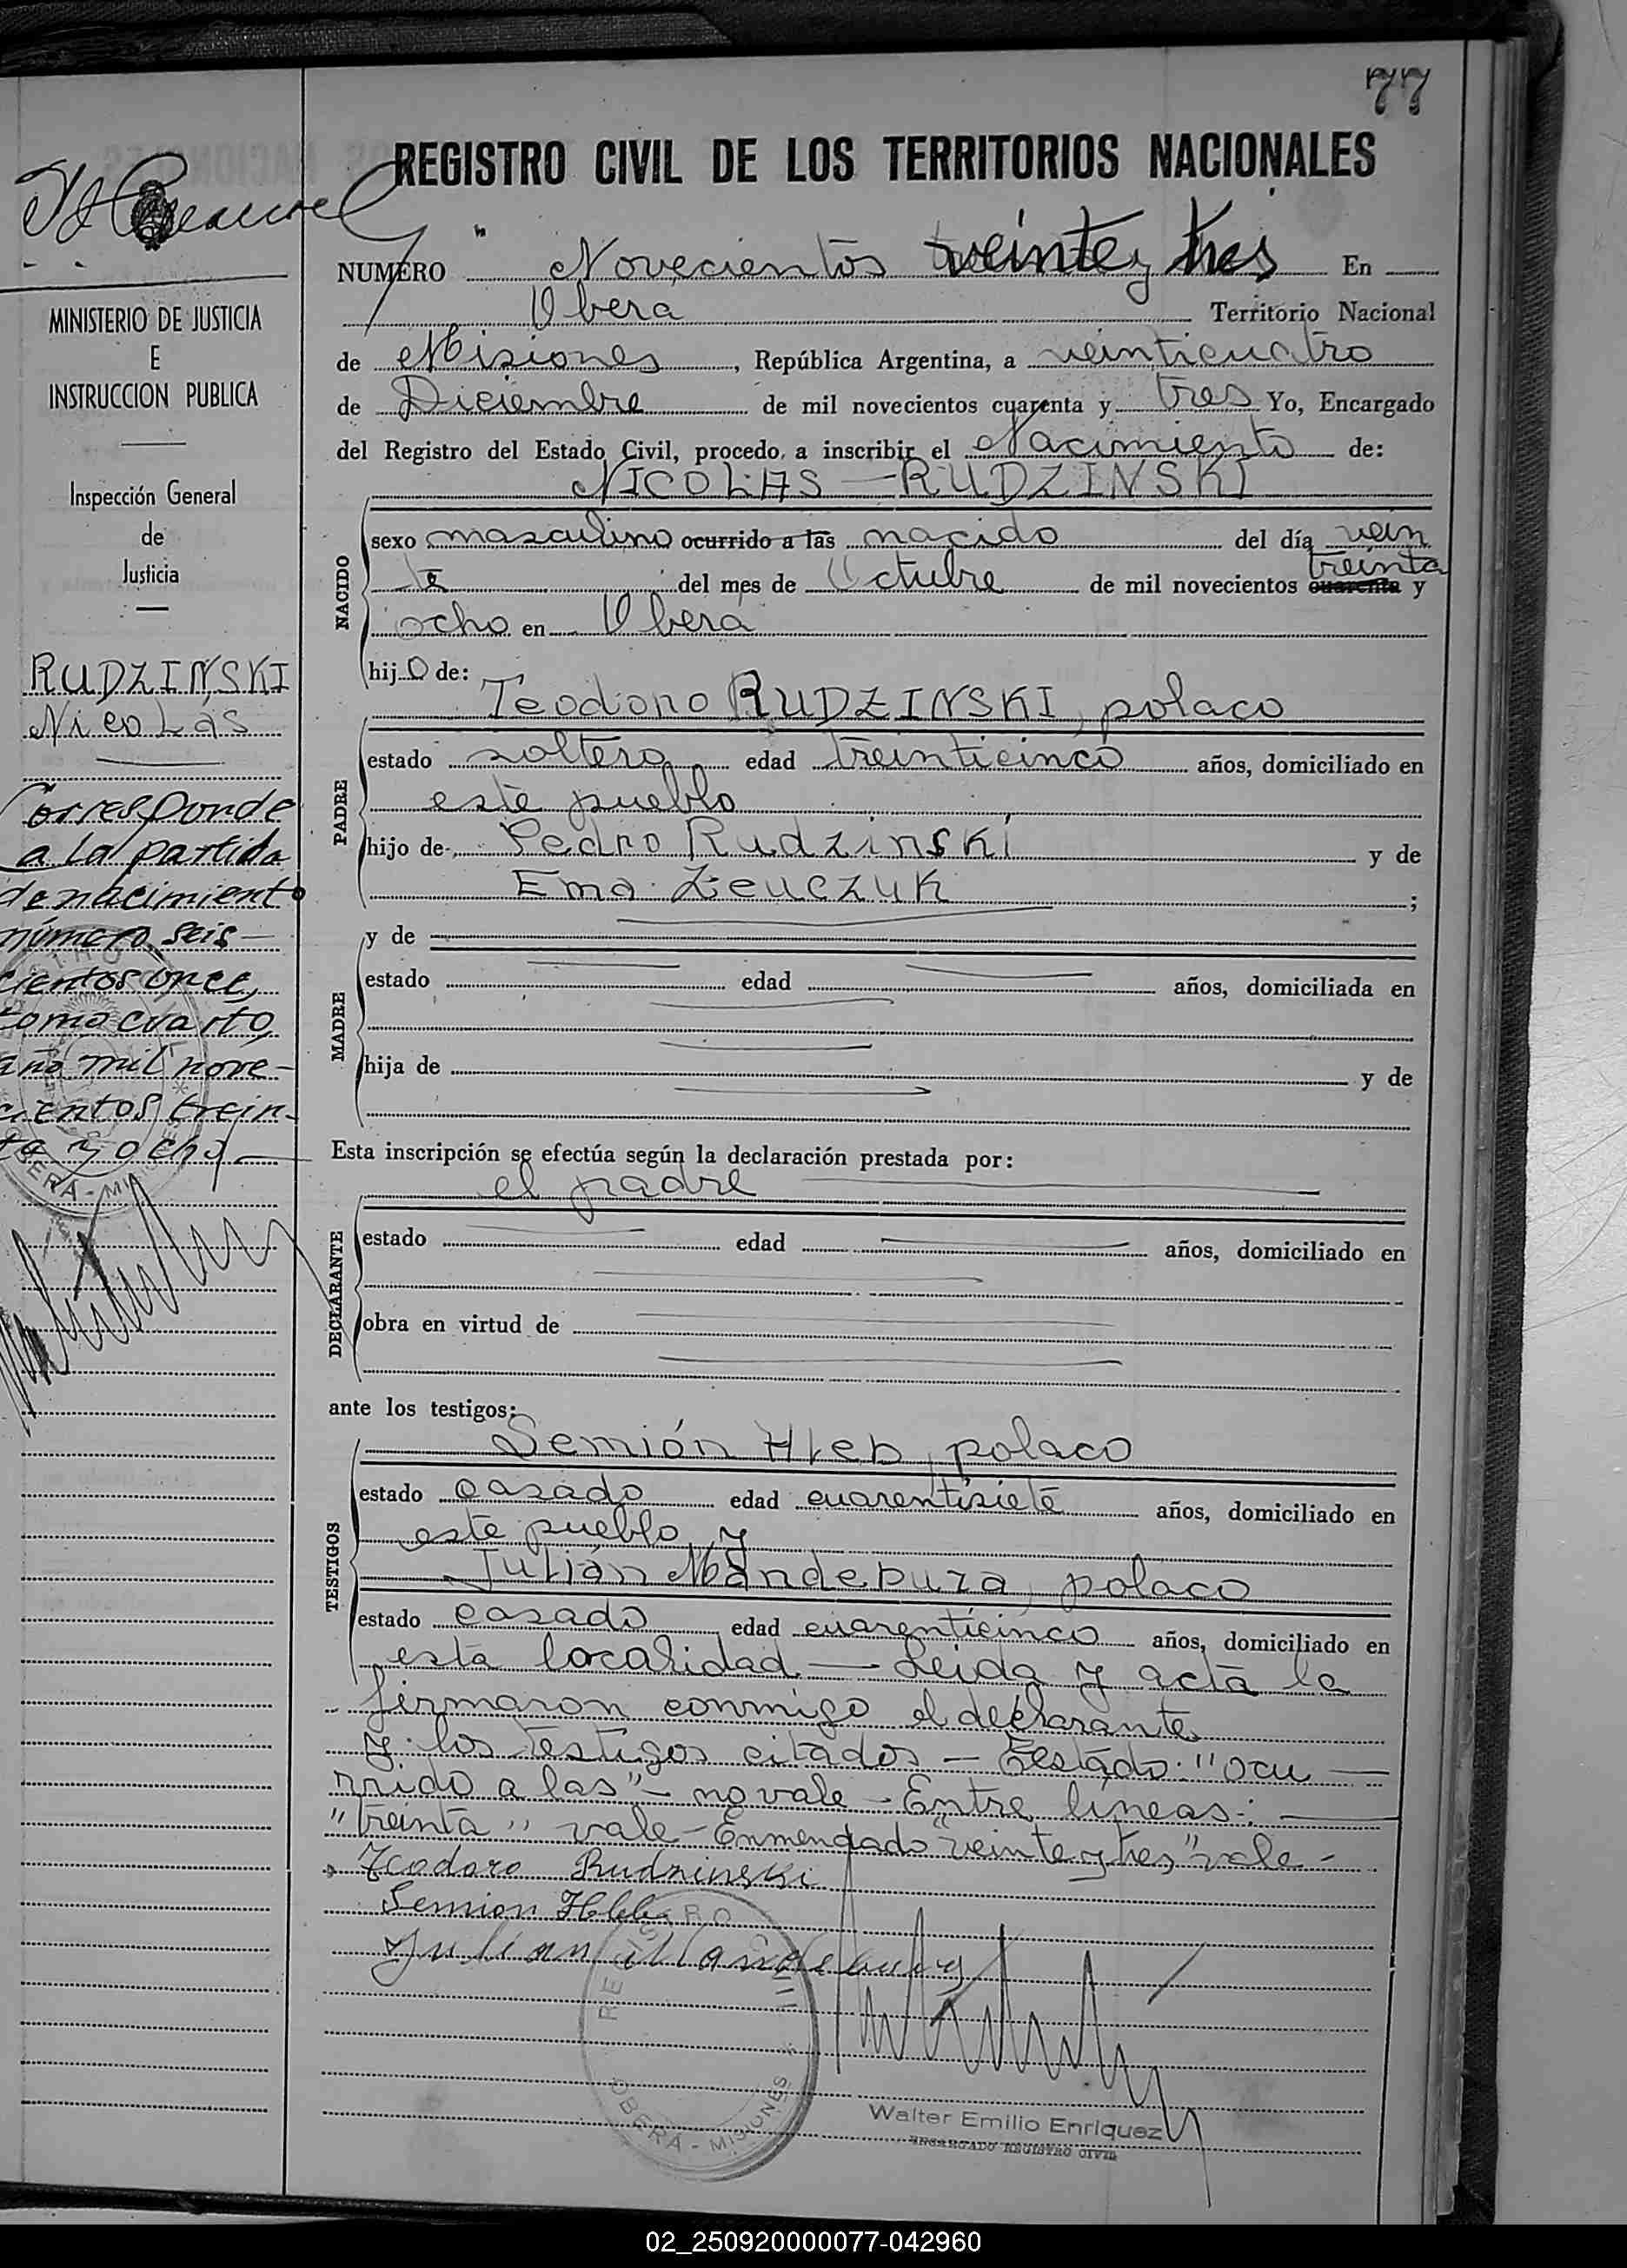 77
REGISTRO CIVIL DE LOS TERRITORIOS NACIONALES
NUMERO Novecientos veinte y tres En
Obera Territorio Nacional
de Misiones, República Argentina, a veinticuatro
de Diciembre de mil novecientos cuarenta y tres Yo, Encargado
del Registro del Estado Civil, procedo a inscribir el Nacimiento de:
NICOLAS — RUDZINSKI
NACIDO
sexo masculino ocurrido a las nacido del día vein
te del mes de Octubre de mil novecientos cuarenta treinta y
ocho en Obera
hijo de:
PADRE
Teodoro RUDZINSKI, polaco
estado soltero edad treinticinco años, domiciliado en
este pueblo
hijo de Pedro Rudzinski y de
Ema Zeuczuk ;
MADRE
y de
estado edad años, domiciliada en
hija de y de
Esta inscripción se efectúa según la declaración prestada por:
DECLARANTE
el padre
estado edad años, domiciliado en
obra en virtud de
ante los testigos:
TESTIGOS
Semión Hleb, polaco
estado casado edad cuarentisiete años, domiciliado en
este pueblo y
Julián Mandebura, polaco
estado casado edad cuarenticinco años, domiciliado en
esta localidad — Leida y acta la
firmaron conmigo el declarante
y los testigos citados — Testado: "ocu —
rrido a las" — no vale — Entre lineas: —
"treinta" vale — Enmendado "veinte y tres" vale —
Teodoro Rudzinski
Semion Hleb
Julian Mandebura
REGISTRO CIVIL
OBERA - MISIONES
Walter Emilio Enriquez
ENCARGADO REGISTRO CIVIL
MINISTERIO DE JUSTICIA
E
INSTRUCCION PUBLICA
Inspección General
de
Justicia
RUDZINSKI
Nicolás
Corresponde
a la partida
de nacimiento
número seis—
cientos once,
tomo cuarto,
año mil nove—
cientos trein—
ta y ocho —
OBERA - MI
02_250920000077-042960